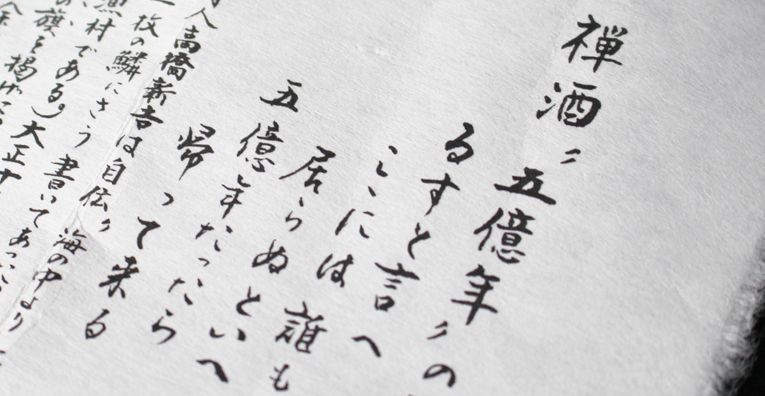 禅酒〝五億年〟の
るすと言へ
ここには誰も
居らぬといへ
五億年たったら
帰って来る
人高橋新吉は自伝〃海の中より
一枚の鱗にさう書いてあった
漁村である。)大正十
の旗を掲げ